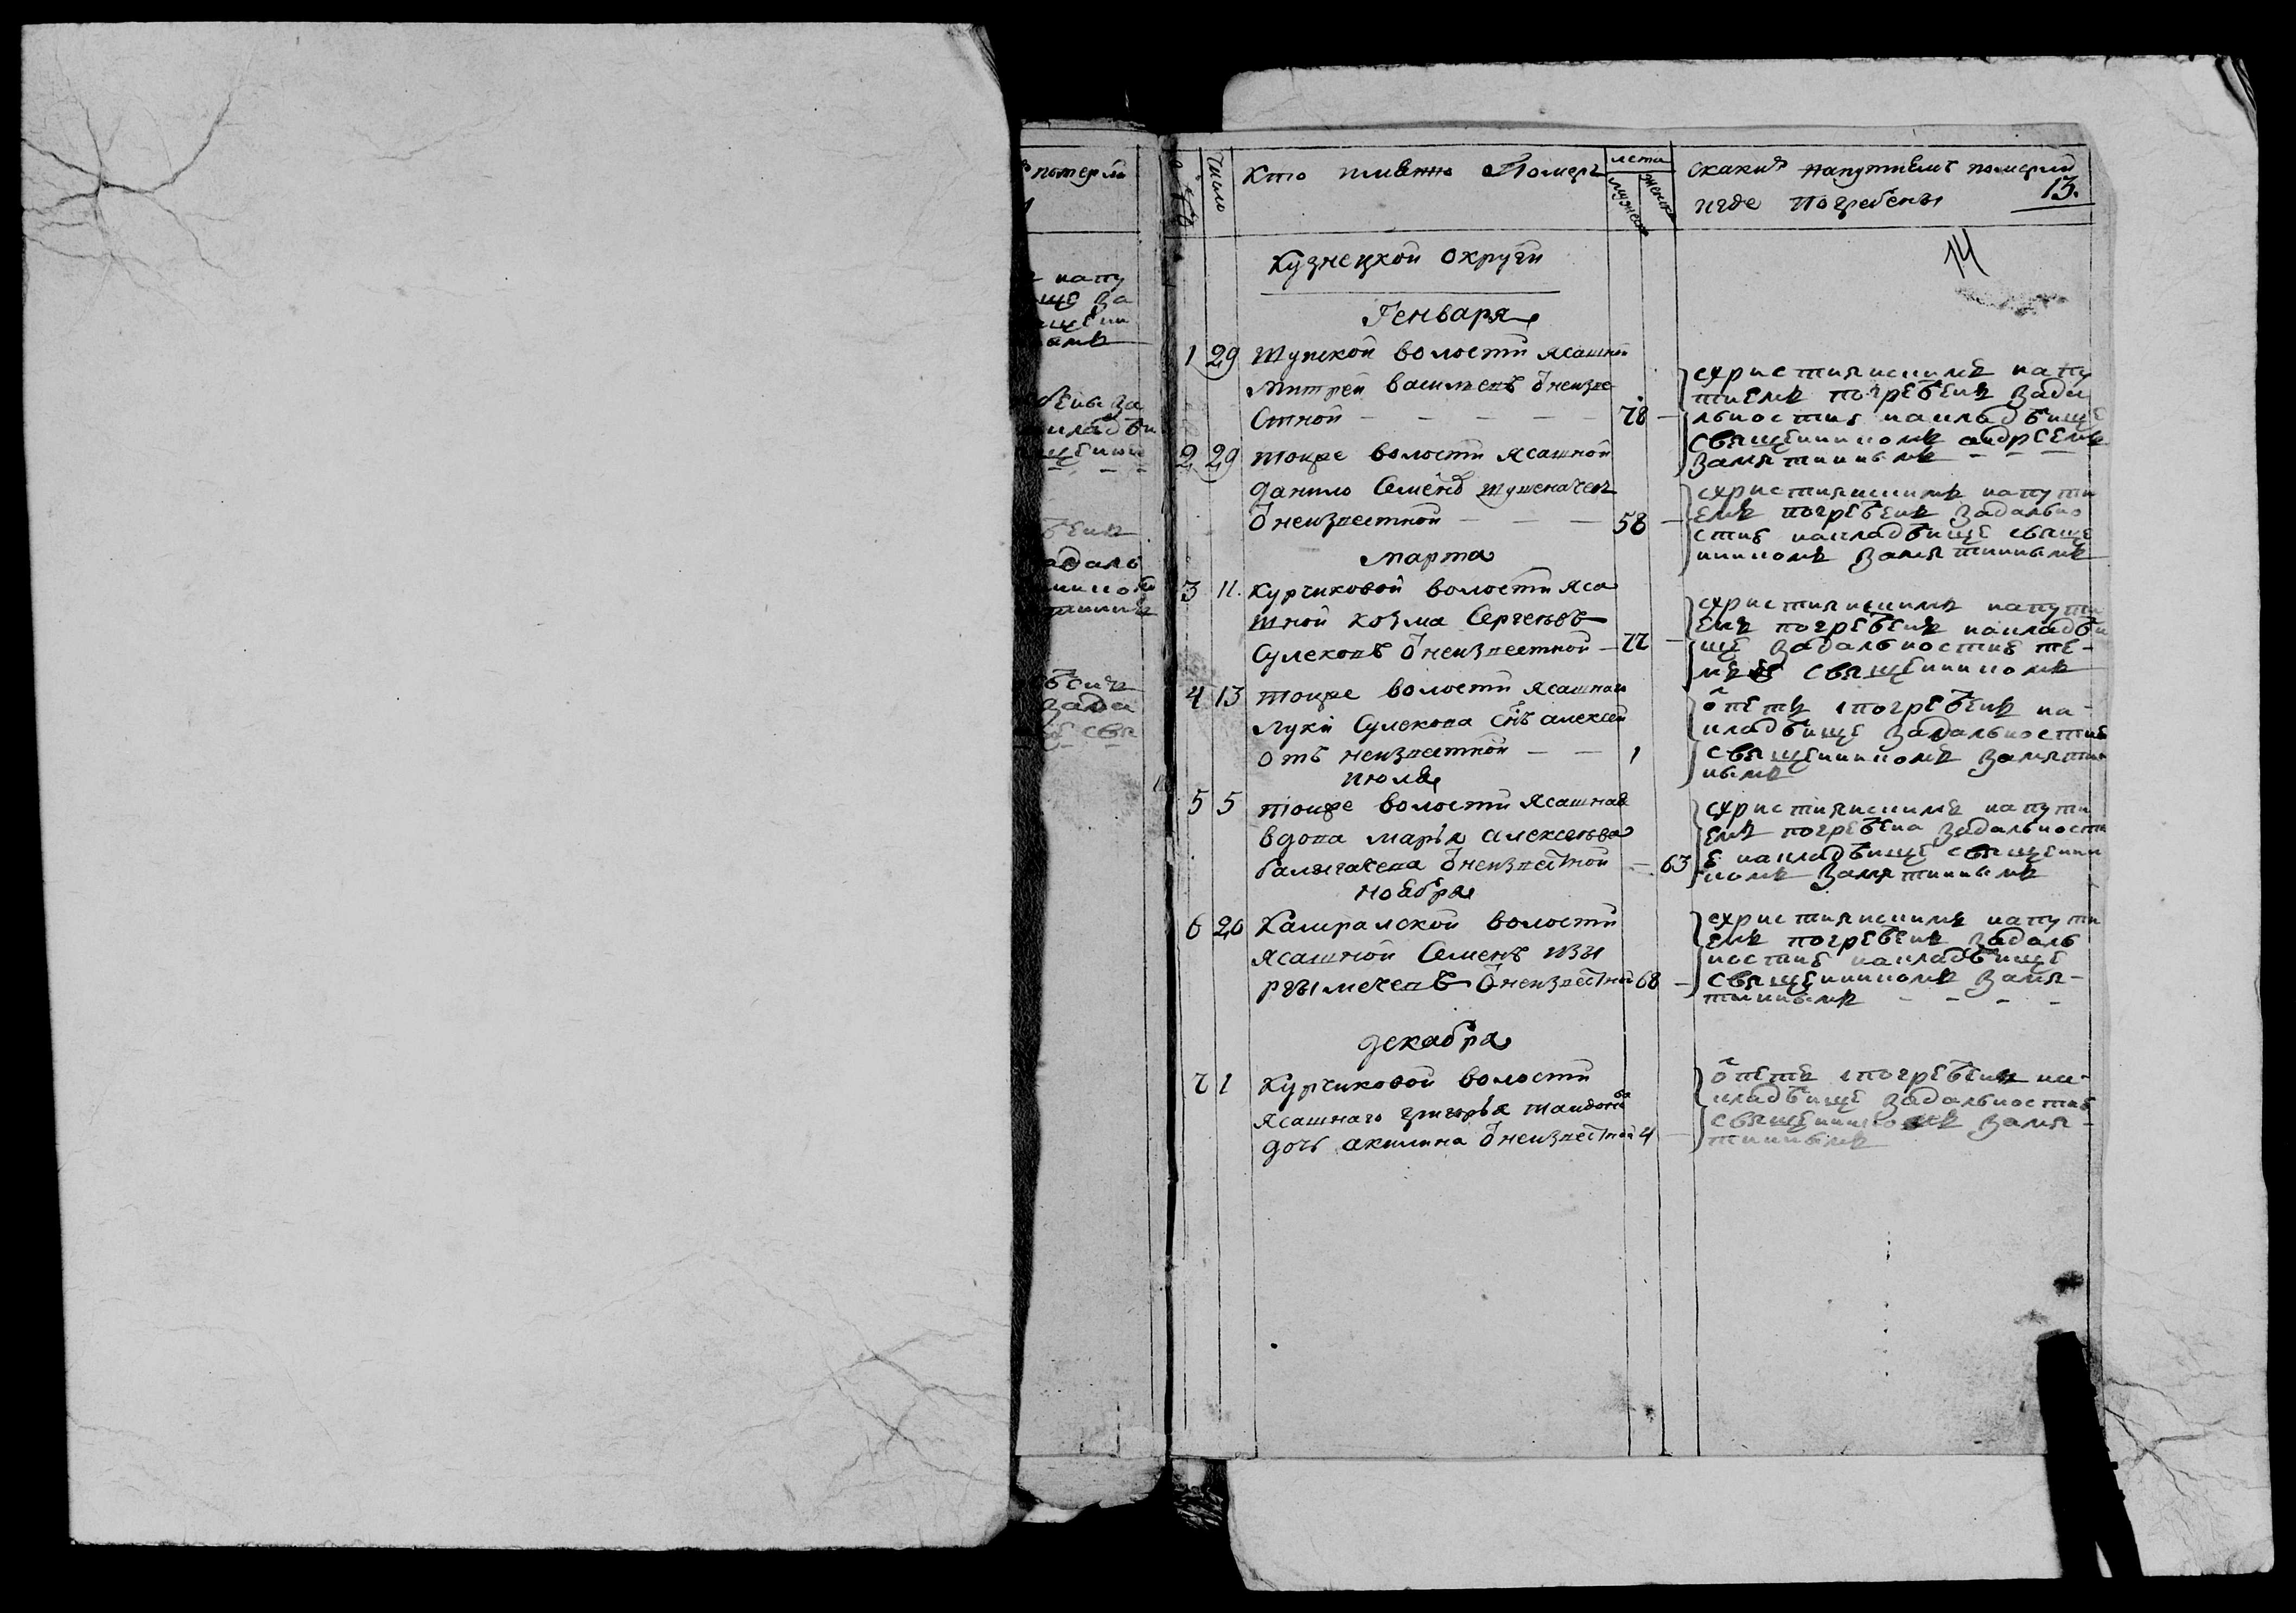 потерли
напу
ще за
щени
бены за
кладби
щенни
бенъ
адаль
нико
тинны
бенъ
зада
свя
число
Кто имянно Померъ
лета
мужеск
женск
скакимъ напутиемъ померли
13.
игде погребены
14
Кузнецкой округи
Генваря
1 29 Шуйской волости ясашной
Митрей васильевъ ѿ неизве
стной — 78
схристианскимъ напу
тиемъ погребенъ зада
льностию накладбище
священникомъ андреемъ
Замятиннымъ
2 29 тоиже волости ясашной
данило Семенов
ѿ неизвестной — 58
схристианскимъ напути
емъ погребенъ задально
стию накладбище свяще
нникомъ Замятиннымъ
марта
3 11. Курчиковой волости яса
шной козма Сергеевъ
Сулековъ ѿ неизвестной — 77
схристианскимъ напути
емъ погребенъ накладби
ще задальностию те-
мъ священникомъ
4 13 тоиже волости ясашнаи
луки Сулекова снъ алексей
отъ неизвестной — 1
ѿпетъ ипогребенъ на-
кладбище задальностию
священникомъ Замятин
нымъ
июля
5 5 тоиже волости ясашная
вдова марья алексеева
ѿ неизвестной — 63
схристианскимъ напути
емъ погребена задальности
ю накладбище священни
комъ Замятиннымъ
ноября
6 20 Камралской волости
ясашной Семенъ изы
ргымечевъ ѿ неизвестной 68
схристианскимъ напути
емъ погребенъ задаль
ностию накладбище
священникомъ Замя-
тиннымъ
декабря
7 1 Курчиковой волости
ясашнаго григорья
дочь акилина ѿ неизвестной 4
ѿпетъ ипогребенъ на-
кладбище задальностию
священникомъ Замя-
тиннымъ